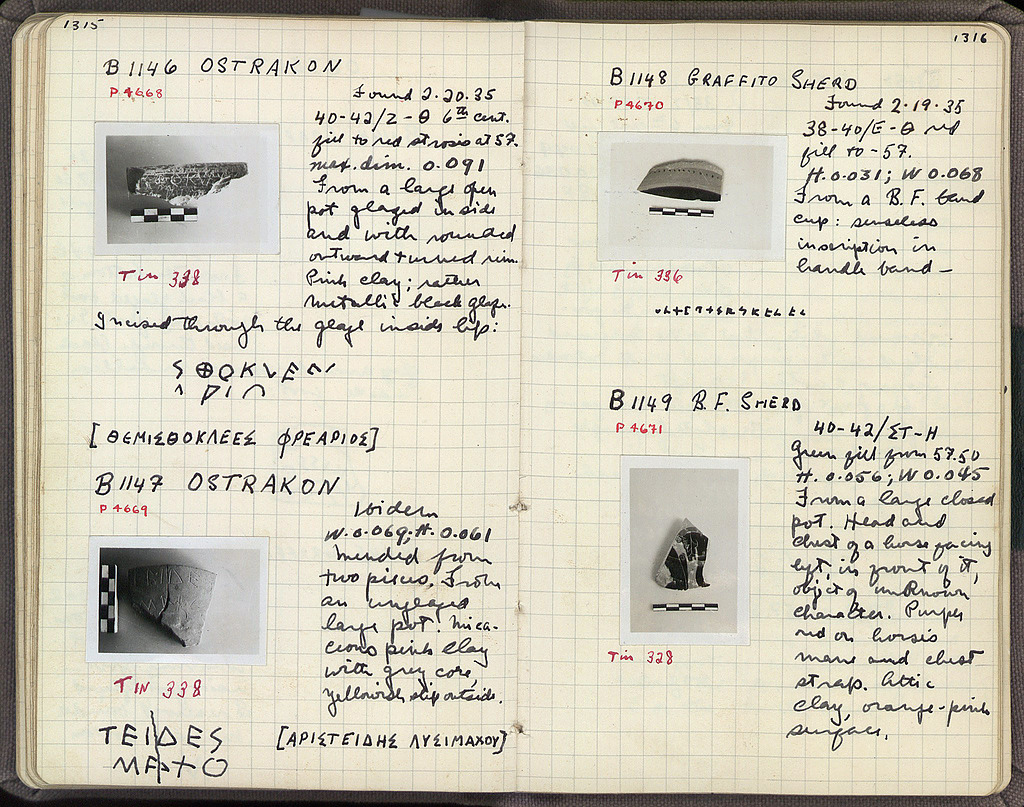 1315
B 1146 OSTRAKON
P 4668
Found 2.20.35
40-42/Z-Θ 6th cent.
fill to red strosis at 57.
max. dim. 0.091
From a large open
pot glazed inside
and with rounded
outward turned rim.
Pink clay; rather
metallic black glaze.
Tin 338
Incised through the glaze inside lip:
[ΘΕΜΙΣΘΟΚΛΕΕΣ ΦΡΕΑΡΙΟΣ]
B 1147 OSTRAKON
P 4669
Ibidem
W. 0.069; H. 0.061
Mended from
two pieces. From
an unglazed
large pot. Mica-
ceous pink clay
with grey core,
yellowish slip outside.
TIN 338
ΤΕΙΔΕS
[ΑΡΙΣΤΕΙΔΗΣ ΛΥΣΙΜΑΧΟΥ]
1316
B 1148 GRAFFITO SHERD
P 4670
Found 2.19.35
38-40/E-Θ red
fill to -57.
H. 0.031; W 0.068
From a B.F. band
cup: senseless
inscription in
handle band—
Tin 336
B 1149 B.F. SHERD
P 4671
40-42/ΣΤ-Η
Green fill from 57.50
H. 0.056; W 0.045
From a large closed
pot. Head and
chest of a horse facing
left, in front of it,
object of unknown
character. Purple
red on horse's
mane and chest
strap. Attic
clay, orange-pink
surface.
Tin 328